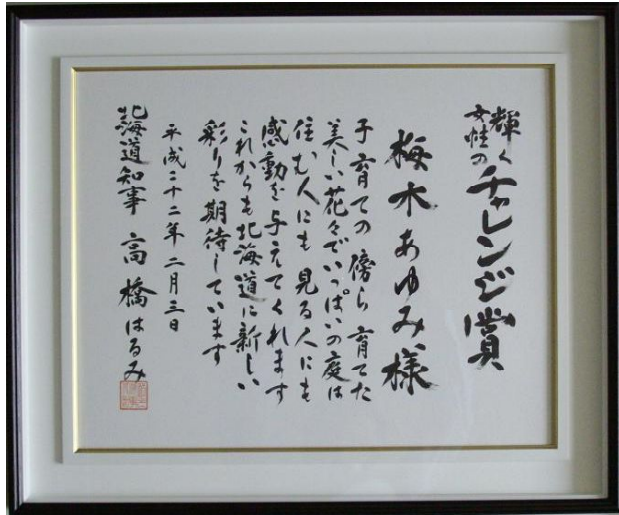 輝く
女性の
チャレンジ賞
梅木あゆみ様
子育ての傍ら育てた
美しい花々でいっぱいの庭は
住む人にも見る人にも
感動を与えてくれます
これからも北海道に新しい
彩りを期待しています
平成二十二年二月三日
北海道知事 高橋はるみ